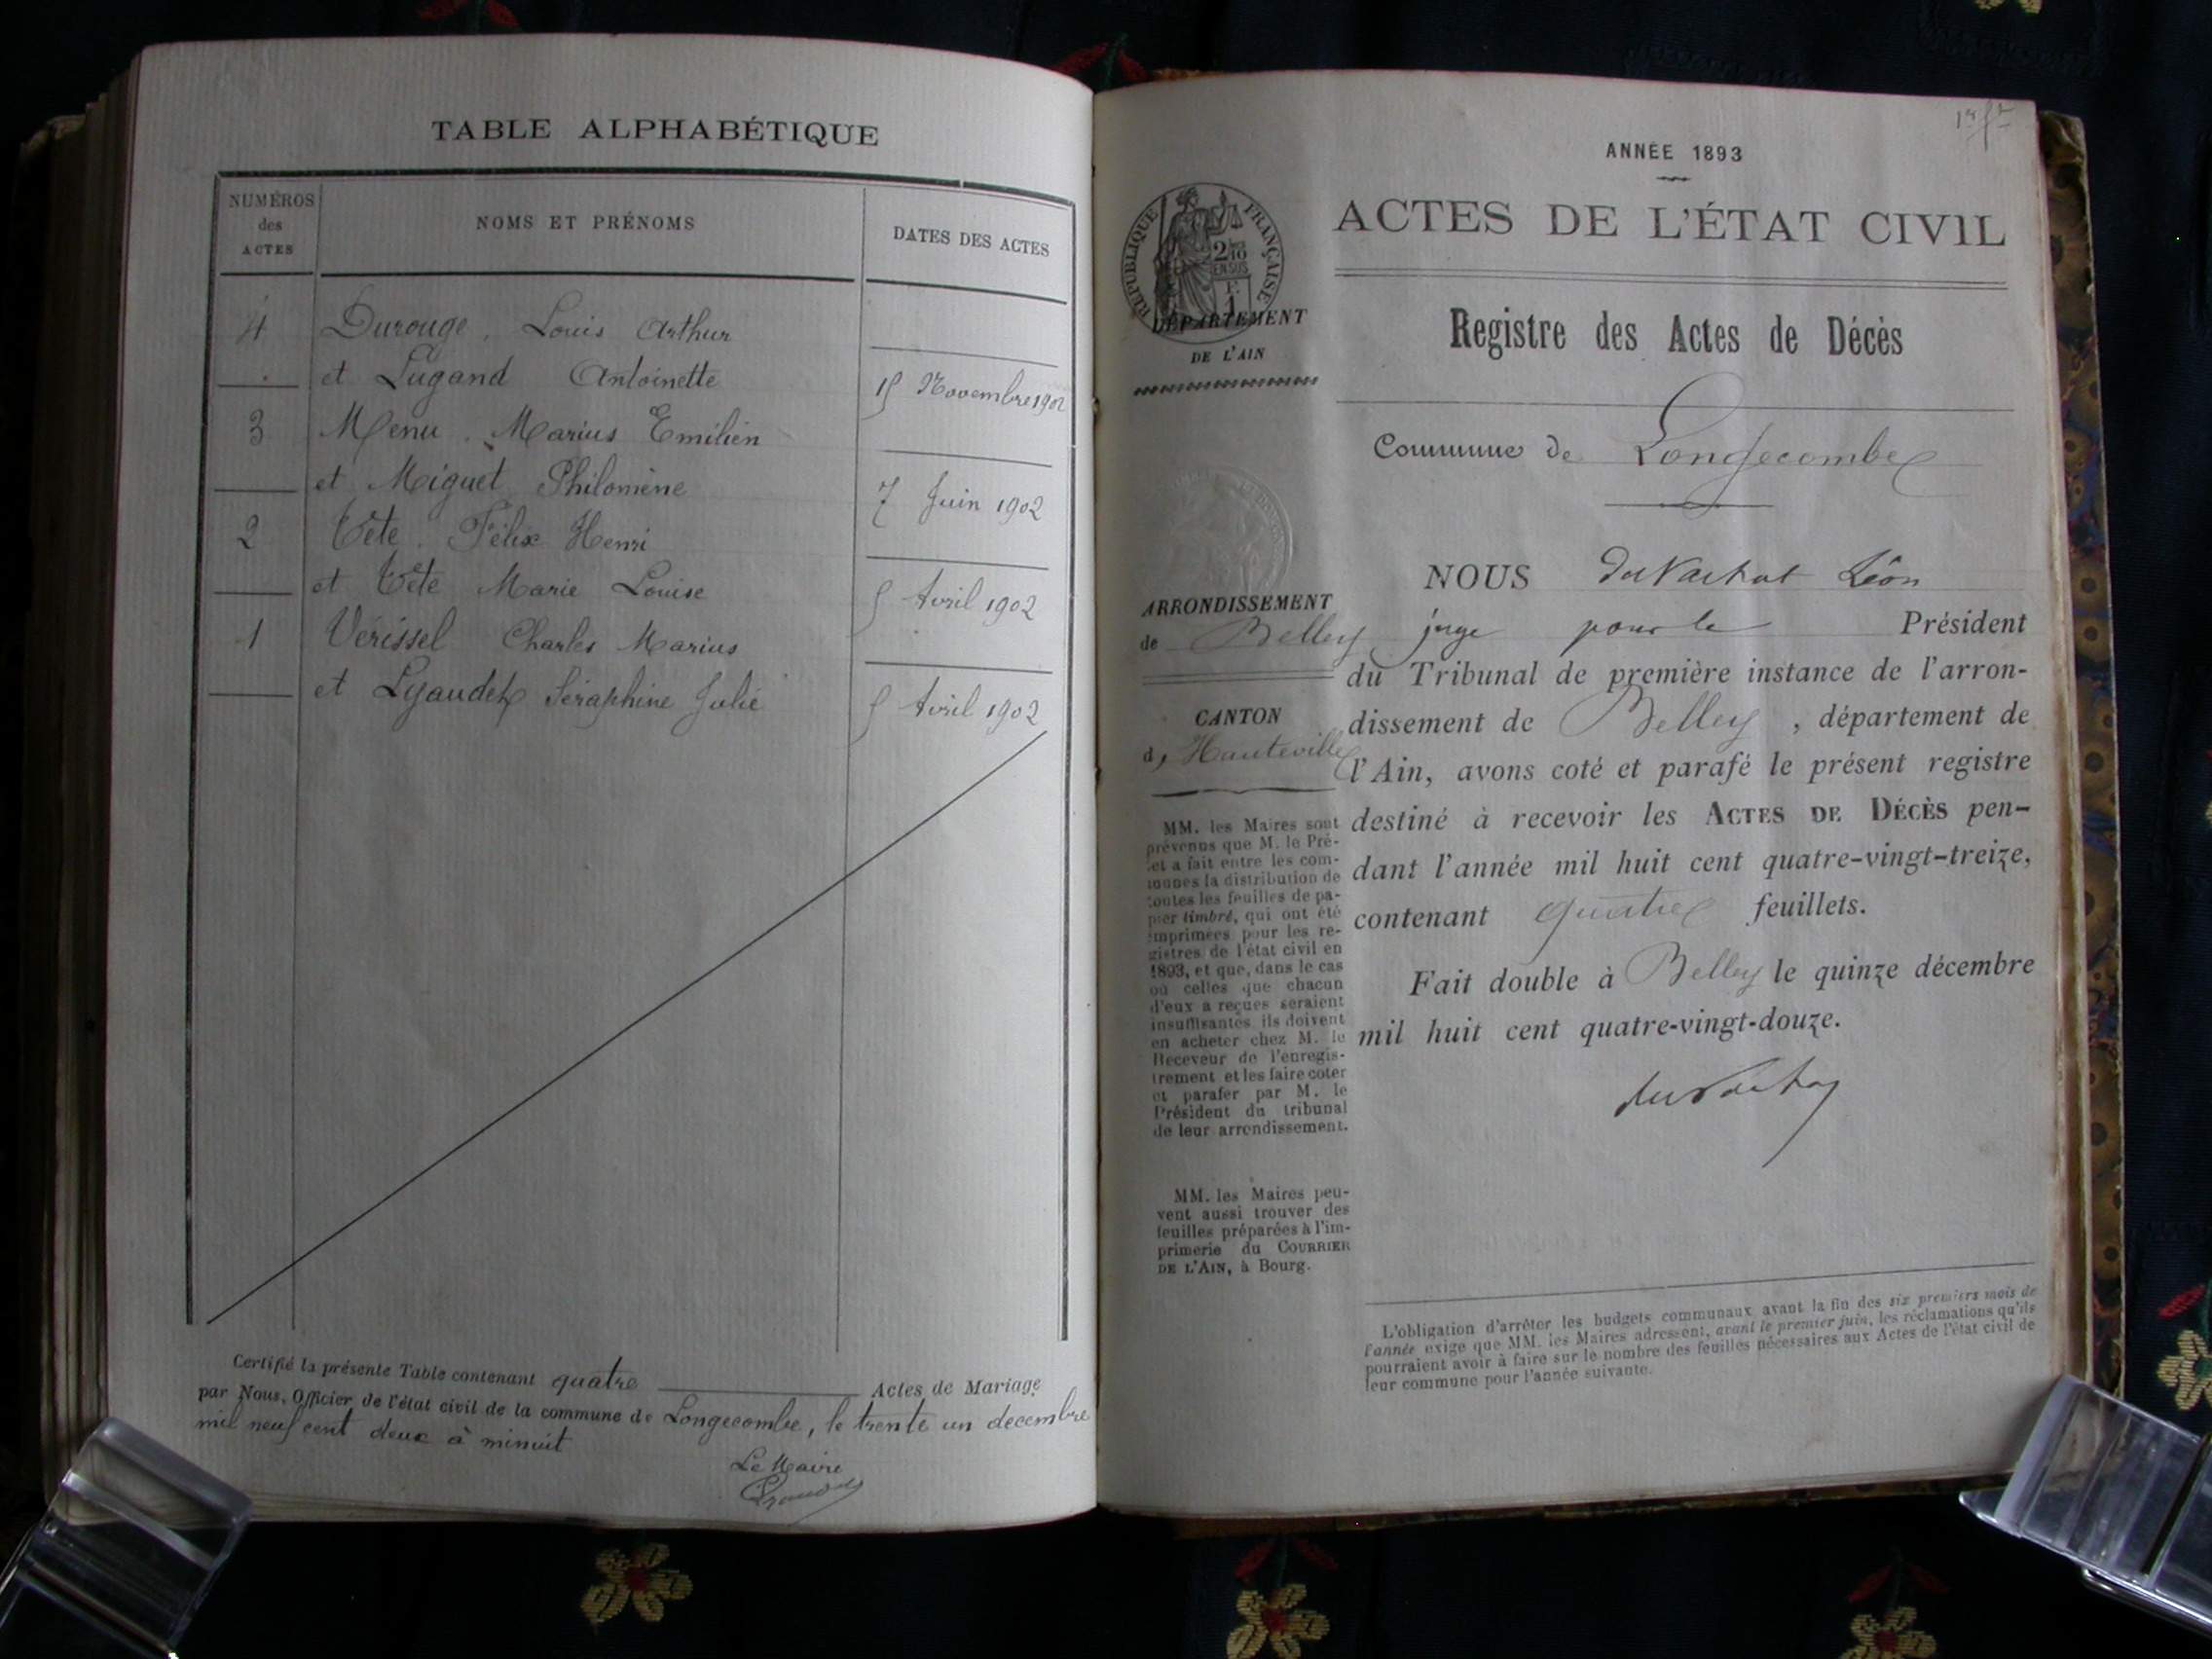 TABLE ALPHABÉTIQUE
NUMÉROS
des
ACTES
NOMS ET PRÉNOMS
DATES DES ACTES
4 Durouge, Louis Arthur
et Lugand Antoinette 15 Novembre 1902
3 Menu, Marius Emilien
et Miguet Philomène 7 Juin 1902
2 Tête, Félix Henri
et Tête Marie Louise 5 Avril 1902
1 Vérissel Charles Marius
et Lyaudet Séraphine Julie 5 Avril 1902
Certifié la présente Table contenant quatre Actes de Mariage
par Nous, Officier de l'état civil de la commune de Longecombe, le trente un decembre
mil neuf cent deux à minuit
Le Maire
ANNÉE 1893
ACTES DE L'ÉTAT CIVIL
RÉPUBLIQUE FRANÇAISE
2/10
EN SUS
DÉPARTEMENT
DE L'AIN
Registre des Actes de Décès
Commune de Longecombe
ARRONDISSEMENT
de Belley
CANTON
d, Hauteville
NOUS Duvachat Léon
juge pour le Président
du Tribunal de première instance de l'arron-
dissement de Belley, département de
l'Ain, avons coté et parafé le présent registre
destiné à recevoir les ACTES DE DÉCÈS pen-
dant l'année mil huit cent quatre-vingt-treize,
contenant quatre feuillets.
Fait double à Belley le quinze décembre
mil huit cent quatre-vingt-douze.
MM. les Maires sont
prévenus que M. le Pré-
fet a fait entre les com-
munes la distribution de
toutes les feuilles de pa-
pier timbré, qui ont été
imprimées pour les re-
gistres de l'état civil en
1893, et que, dans le cas
où celles que chacun
d'eux a reçues seraient
insuffisantes, ils doivent
en acheter chez M. le
Receveur de l'enregis-
trement et les faire coter
et parafer par M. le
Président du tribunal
de leur arrondissement.
MM. les Maires peu-
vent aussi trouver des
feuilles préparées à l'im-
primerie du COURRIER
DE L'AIN, à Bourg.
L'obligation d'arrêter les budgets communaux avant la fin des six premiers mois de
l'année exige que MM. les Maires adressent, avant le premier juin, les réclamations qu'ils
pourraient avoir à faire sur le nombre des feuilles nécessaires aux Actes de l'état civil de
leur commune pour l'année suivante.